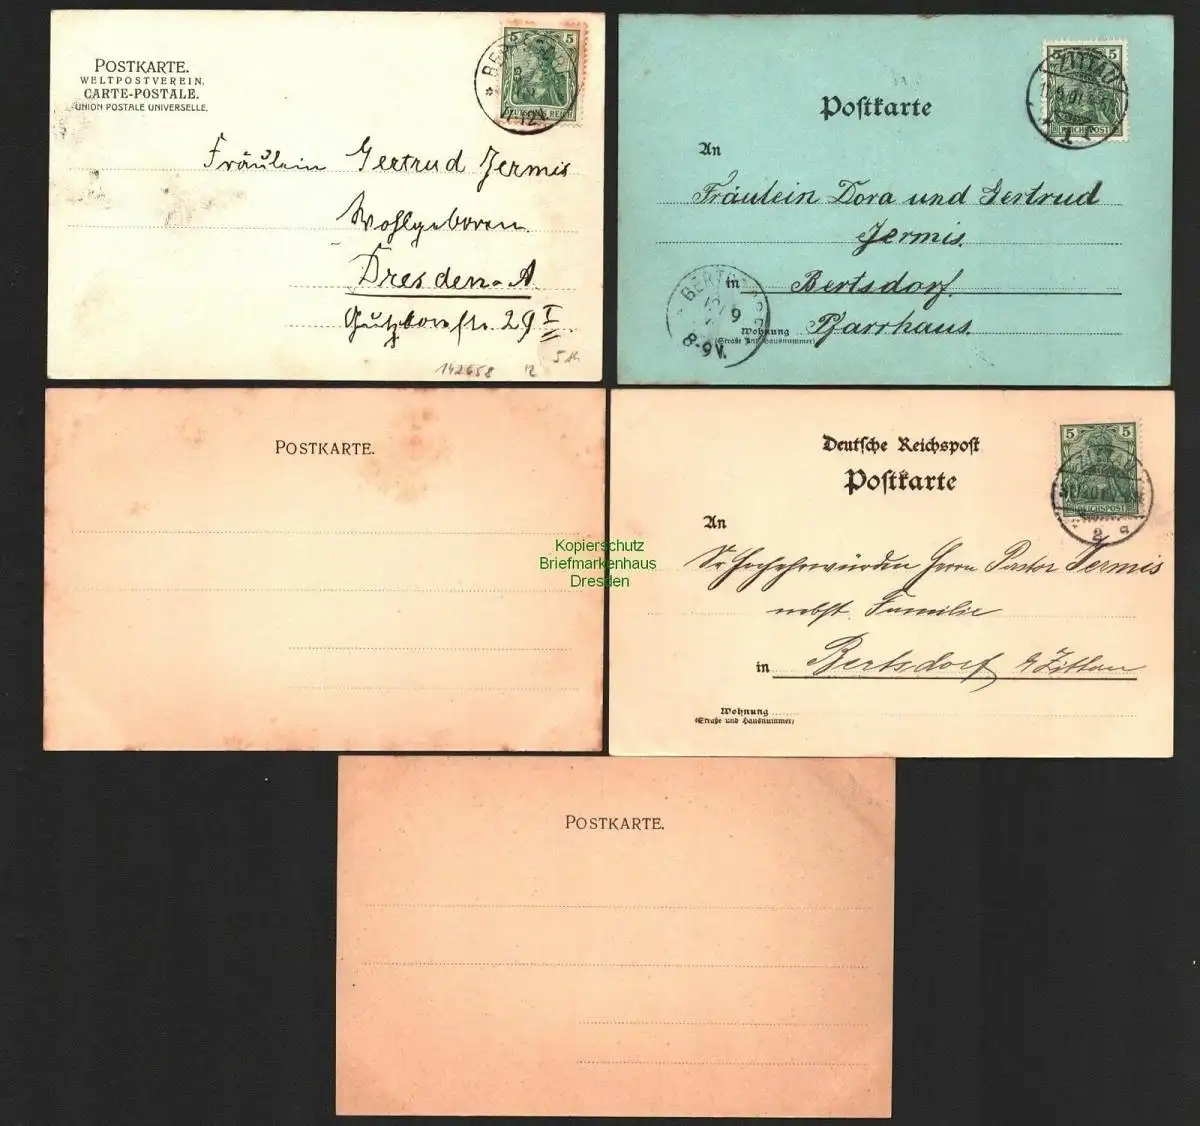 POSTKARTE.
WELTPOSTVEREIN.
CARTE-POSTALE.
UNION POSTALE UNIVERSELLE.
5 5
DEUTSCHES REICH
Fräulein Gertrud Jermis
Wohlgeboren
Dresden-A.
29 I
142658 12
Postkarte
5
REICHSPOST
ZITTAU
An
Fräulein Dora und Gertrud
Jermis.
in Bertsdorf.
Wohnung Pfarrhaus.
(Straße und Hausnummer)
8-9V.
POSTKARTE.
Deutsche Reichspost
Postkarte
5 5
REICHSPOST
An
Sr Hochehrwürden Herrn Pastor Jermis
nebst Familie
in Bertsdorf b/Zittau
Wohnung
(Straße und Hausnummer)
Kopierschutz
Briefmarkenhaus
Dresden
POSTKARTE.